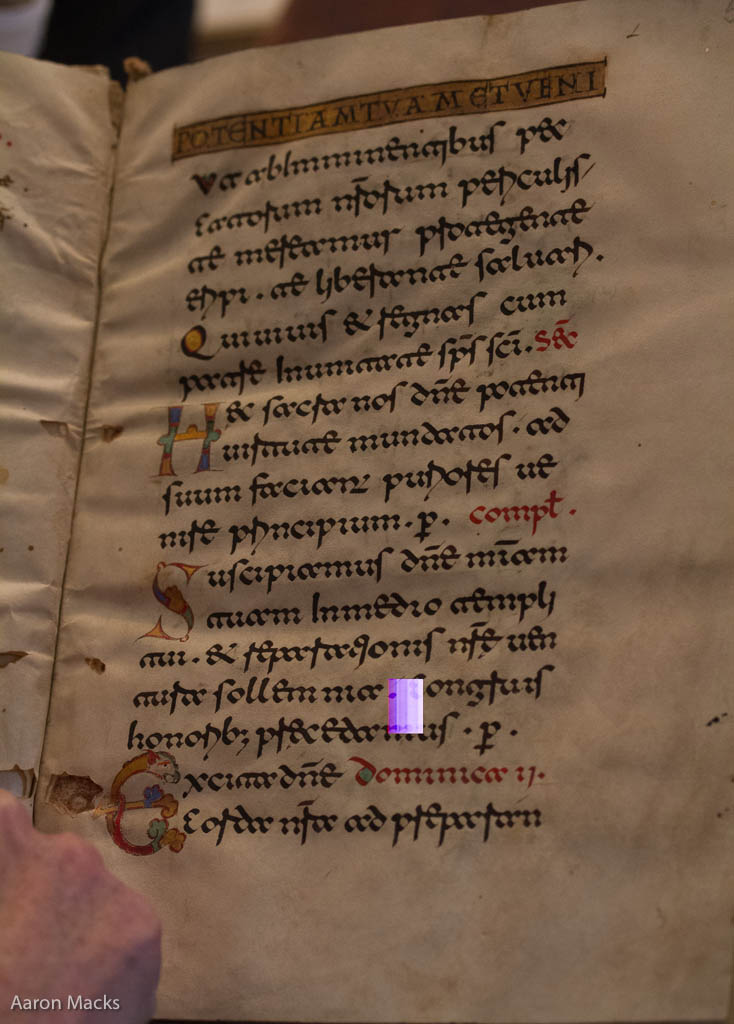 POTENTIAM TUAM ET VENI
ut ab Imminentibus pec
catorum nr̄orum periculis
te mereamur protegente
eripi. te liberante saluari.
Qui uiuis & regnas cum
patre In unitate sp̄s sc̄i. Sec̄
Hec sacra nos dn̄e potenti
uirtute mundatos. ad
suum faciant puriores ue
nire principium. p̄. compł.
Suscipiamus dn̄e mīam
tuam In medio templi
tui. & reparationis nr̄e uen
tura sollemnia
honorib; precedamus. p̄.
Excita dn̄e Dominica ii.
corda nr̄a ad preparan